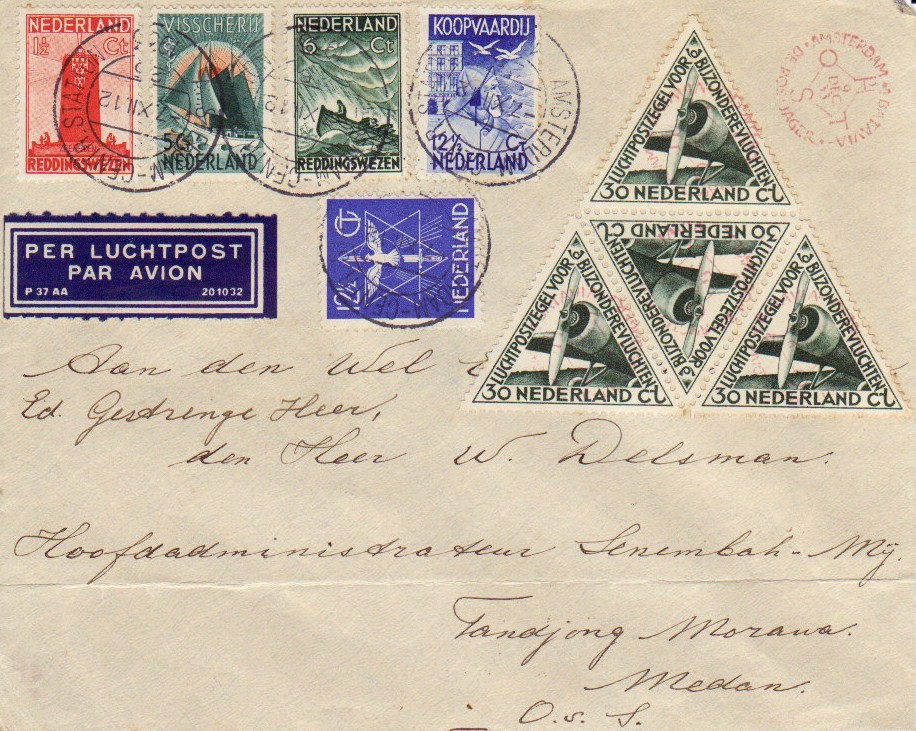 NEDERLAND
1½ Ct
REDDINGSWEZEN
VISSCHERIJ
5 Ct
NEDERLAND
NEDERLAND
6 Ct
REDDINGSWEZEN
KOOPVAARDIJ
12½ Ct
NEDERLAND
AMSTERDAM
XII.12
12½ Ct
NEDERLAND
PER LUCHTPOST
PAR AVION
P 37 AA 201032
LUCHTPOSTZEGEL VOOR BIJZONDERE VLUCHTEN
30 NEDERLAND Ct
LUCHTPOSTZEGEL VOOR BIJZONDERE VLUCHTEN
30 NEDERLAND Ct
LUCHTPOSTZEGEL VOOR BIJZONDERE VLUCHTEN
30 NEDERLAND Ct
LUCHTPOSTZEGEL VOOR BIJZONDERE VLUCHTEN
30 NEDERLAND Ct
AMSTERDAM BATAVIA
Aan den Wel
Ed. Gestrenge Heer,
den Heer W. Delsman.
Hoofdadministrateur Senembah-Mij.
Tandjong Morawa.
Medan.
O. s. S.